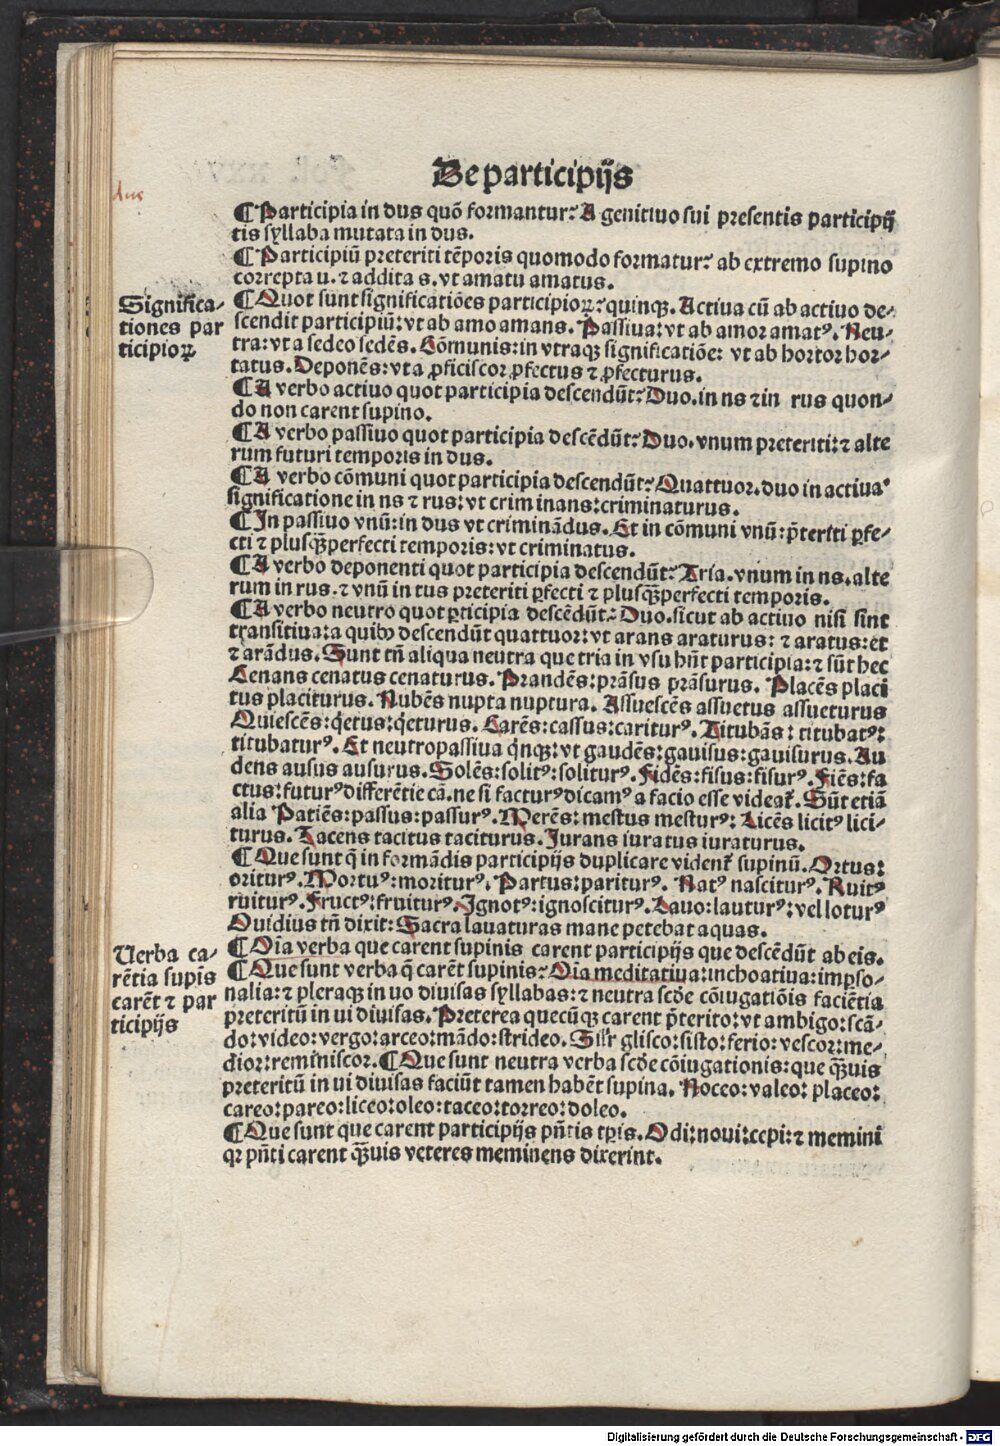 De participijs
dus
¶ Participia in dus quō formantur? A genitiuo sui presentis participij
tis syllaba mutata in dus.
¶ Participiū preteriti tēporis quomodo formatur? ab extremo supino
correpta u. ⁊ addita s. vt amatu amatus.
Significa-
tiones par
ticipioꝝ
¶ Quot sunt significatiōes participioꝝ? quinqꝫ. Actiua cū ab actiuo de-
scendit participiū: vt ab amo amans. Passiua: vt ab amor amatꝰ. Neu-
tra: vt a sedeo sedēs. Cōmunis: in vtraqꝫ significatiōe: vt ab hortor hor-
tatus. Deponēs: vt a ꝓficiscor ꝓfectus ⁊ ꝓfecturus.
¶ A verbo actiuo quot participia descendūt? Duo. in ns ⁊ in rus quon-
do non carent supino.
¶ A verbo passiuo quot participia descēdūt? Duo. vnum preteriti: ⁊ alte
rum futuri temporis in dus.
¶ A verbo cōmuni quot participia descendūt? Quattuor. duo in actiua
significatione in ns ⁊ rus: vt crim inans: criminaturus.
¶ In passiuo vnū: in dus vt criminādus. Et in cōmuni vnū: p̄teriti ꝑfe-
cti ⁊ plusqꝫperfecti temporis: vt criminatus.
¶ A verbo deponenti quot participia descendūt? Tria. vnum in ns. alte
rum in rus. ⁊ vnū in tus preteriti ꝑfecti ⁊ plusqꝫperfecti temporis.
¶ A verbo neutro quot ꝑticipia descēdūt? Duo. sicut ab actiuo nisi sint
transitiua: a quibꝰ descendūt quattuor: vt arans araturus: ⁊ aratus: et
⁊ arādus. Sunt tn̄ aliqua neutra que tria in vsu hn̄t participia: ⁊ sūt hec
Cenans cenatus cenaturus. Prandēs: prāsus prāsurus. Placēs placi
tus placiturus. Nubēs nupta nuptura. Assuescēs assuetus assueturus
Quiescēs: q̇etus: q̇eturus. Carēs: cassus: cariturꝰ. Titubās: titubatꝰ:
titubaturꝰ. Et neutropassiua q̇nqꝫ: vt gaudēs: gauisus: gauisurus. Au
dens ausus ausurus. Solēs: solitꝰ: soliturꝰ. Fidēs: fisus: fisurꝰ. Fiēs: fa
ctus: futurꝰ differētie cā. ne si facturꝰ dicamꝰ a facio esse videat᷑. Sūt etiā
alia Patiēs: passus: passurꝰ. Merēs: mestus mesturꝰ: Licēs licitꝰ lici-
turus. Tacens tacitus taciturus. Jurans iuratus iuraturus.
¶ Que sunt q̄ in formādis participijs duplicare vident᷑ supinū. Ortus:
oriturꝰ. Mortuꝰ: moriturꝰ. Partus: pariturꝰ. Natꝰ nasciturꝰ. Ruitꝰ
ruiturꝰ. Fructꝰ: fruiturꝰ. Jgnotꝰ: ignosciturꝰ. Lauo: lauturꝰ: vel loturꝰ
Ouidius tn̄ dixit: Sacra lauaturas mane petebat aquas.
Verba ca-
rētia supīs
carēt ⁊ par
ticipijs
¶ Oīa verba que carent supinis carent participijs que descēdūt ab eis.
¶ Que sunt verba q̄ carēt supinis? Oīa meditatiua: inchoatiua: imꝑso-
nalia: ⁊ pleraqꝫ in uo diuisas syllabas: ⁊ neutra scd̄e cōiugatiōis faciētia
preteritū in ui diuisas. Preterea quecūqꝫ carent p̄terito: vt ambigo: scā-
do: video: vergo: arceo: mādo: strideo. Silr̄ glisco: sisto: ferio: vescor: me-
dior: reminiscor. ¶ Que sunt neutra verba scd̄e cōiugationis: que qꝫuis
preteritū in ui diuisas faciūt tamen habēt supina. Noceo: valeo: placeo:
careo: pareo: liceo: oleo: taceo: torreo: doleo.
¶ Que sunt que carent participijs pn̄tis tꝑis. Odi: noui: cepi: ⁊ memini
qꝛ pn̄ti carent qꝫuis veteres meminens dixerint.
Digitalisierung gefördert durch die Deutsche Forschungsgemeinschaft - DFG